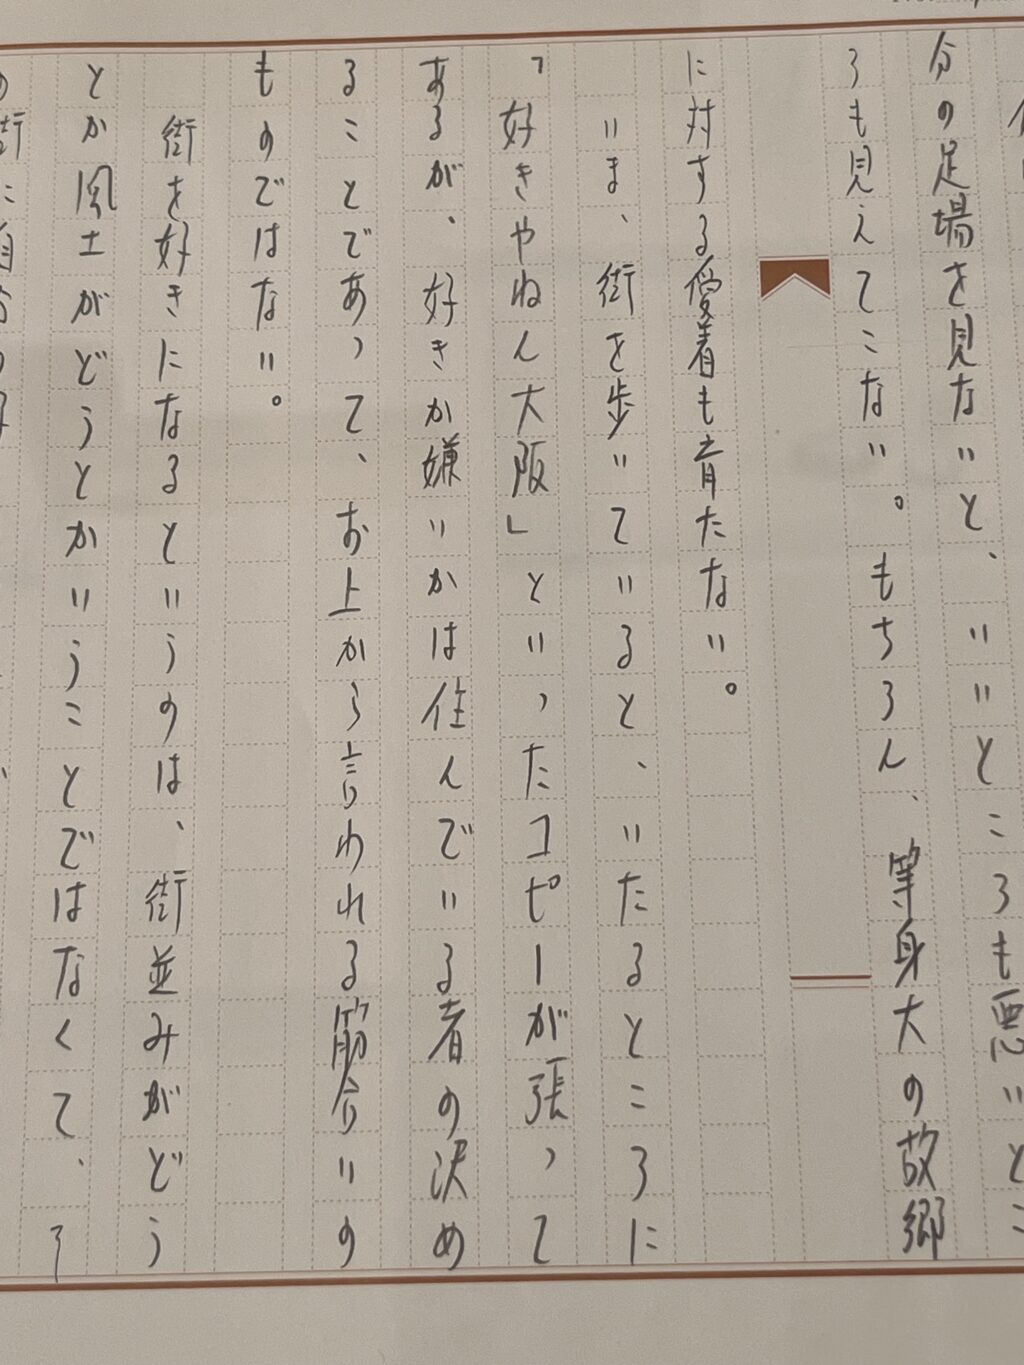 分の足場を見ないと、いいところも悪いとこ
ろも見えてこない。もちろん、等身大の故郷
に対する愛着も育たない。
いま、街を歩いていると、いたるところに
「好きやねん大阪」といったコピーが張って
あるが、好きか嫌いかは住んでいる者の決め
ることであって、お上から言われる筋合いの
ものではない。
街を好きになるというのは、街並みがどう
とか風土がどうとかいうことではなくて、そ